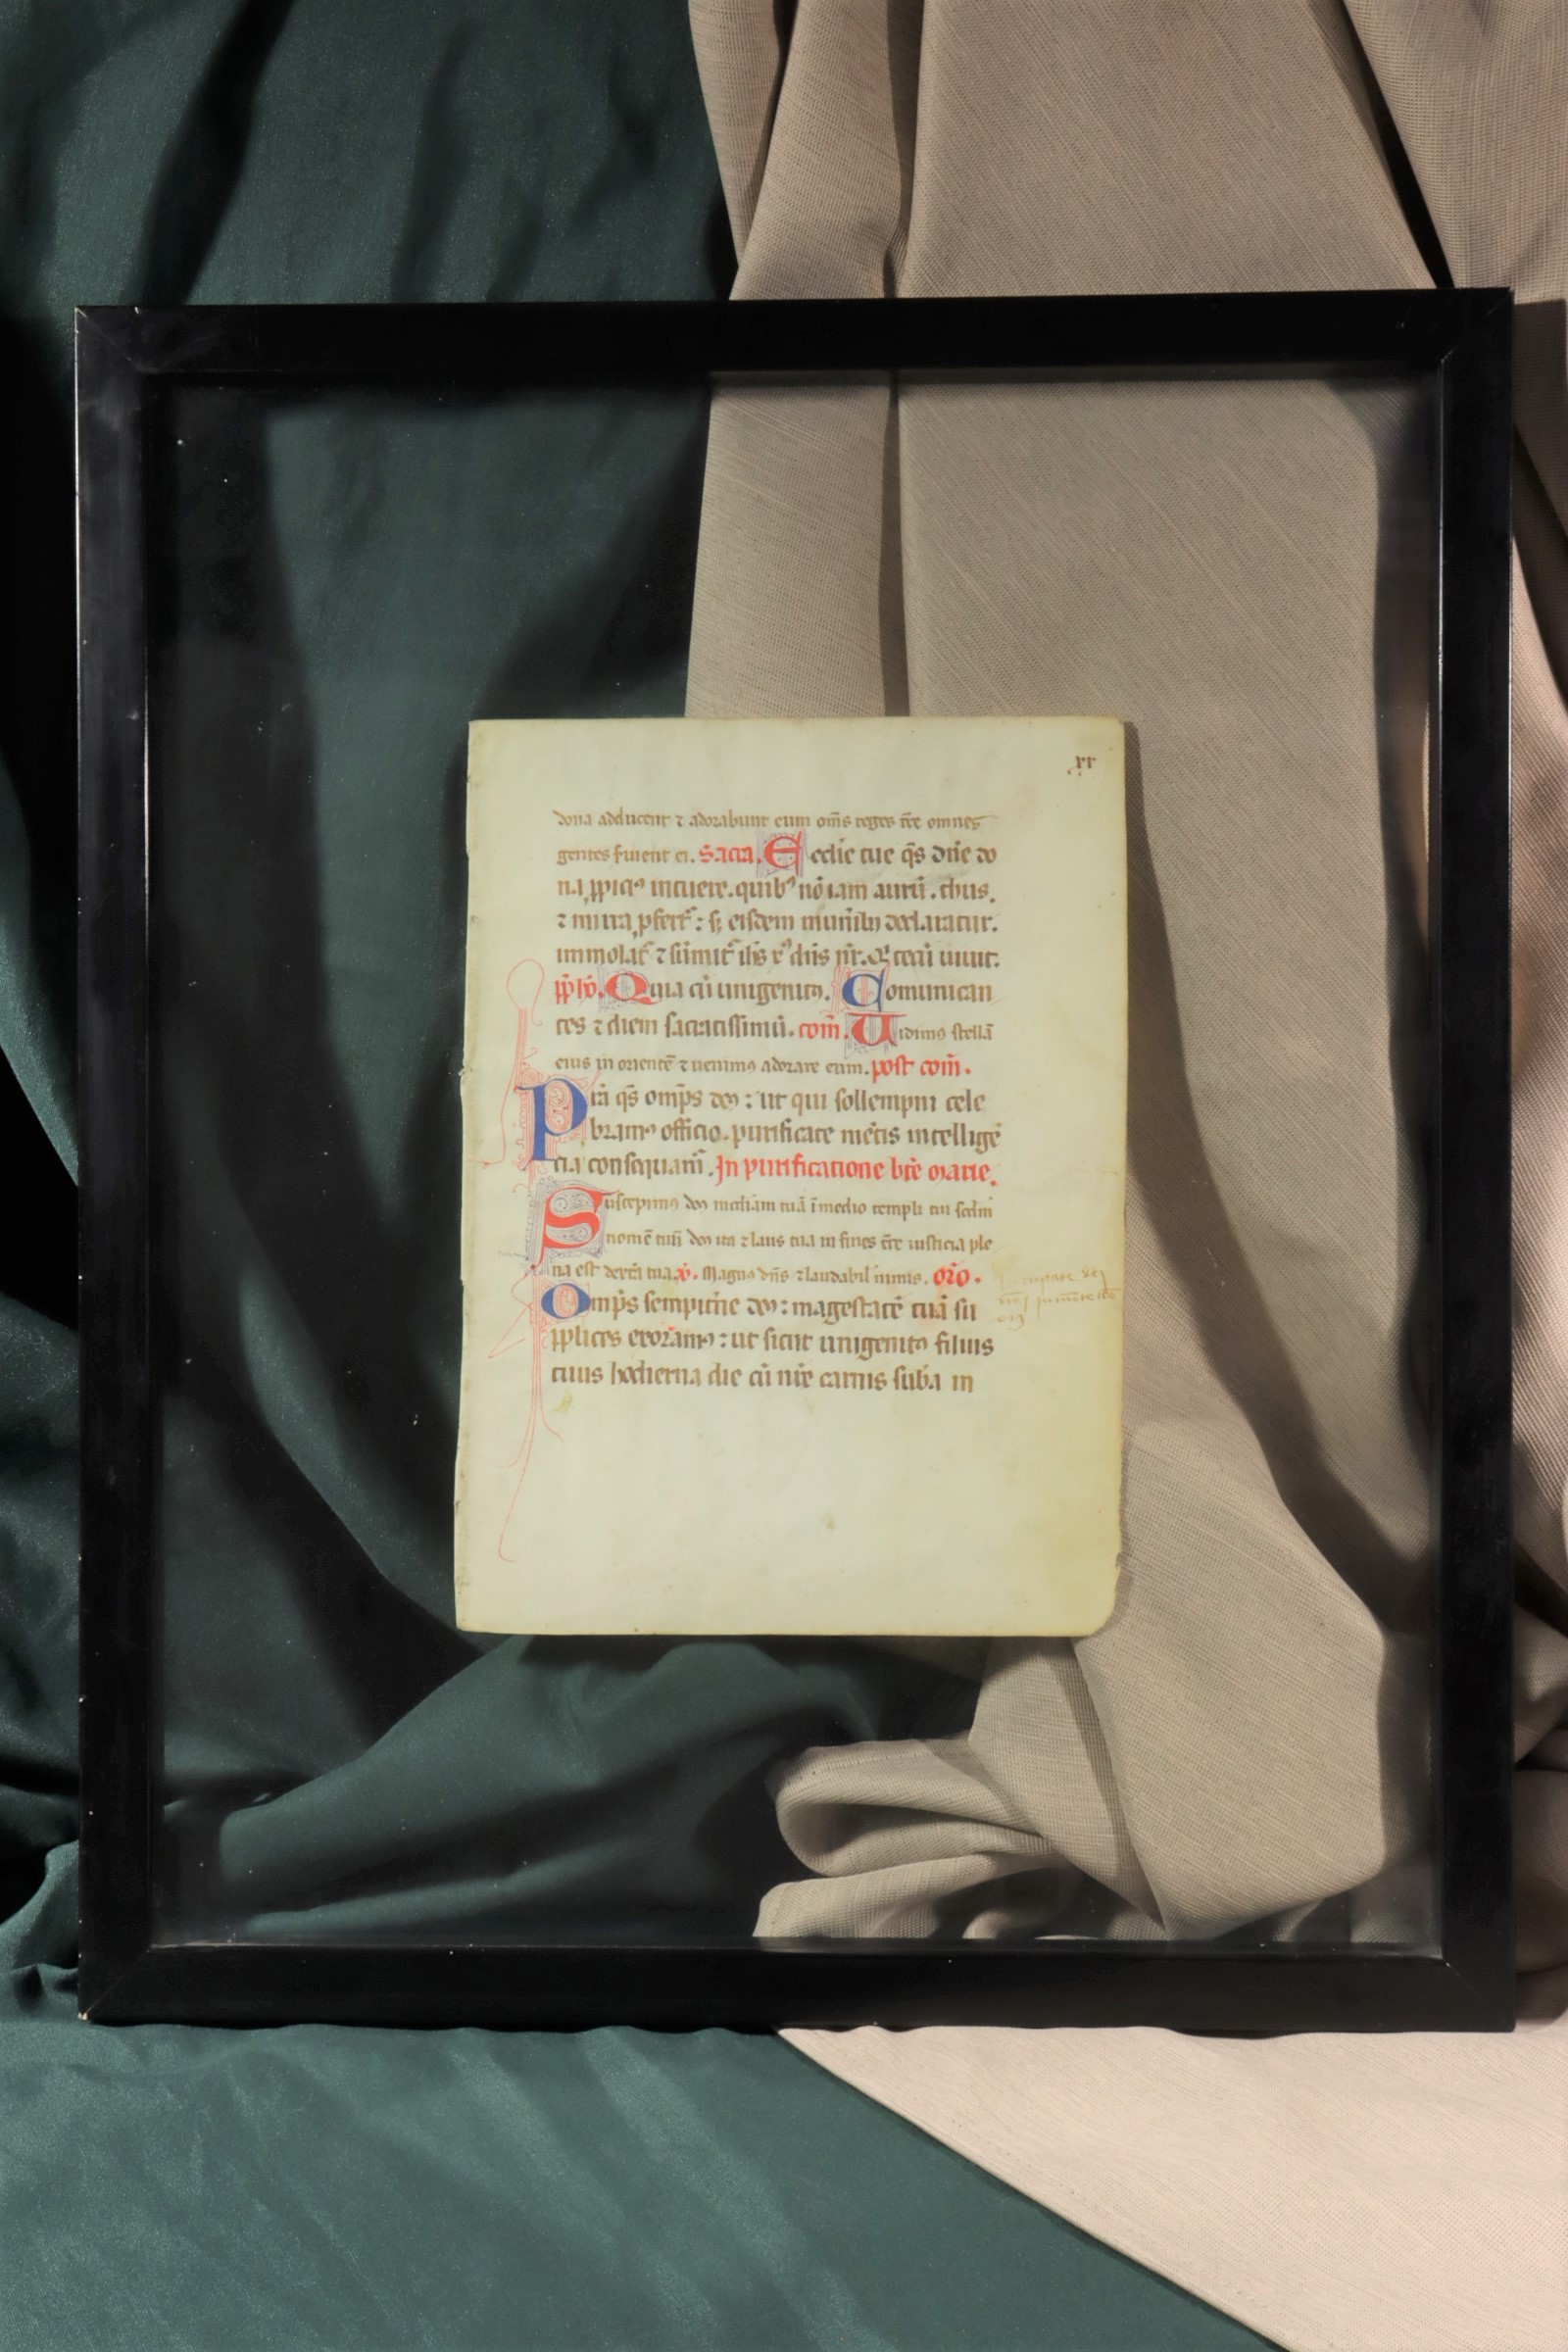 xx
dona adducent ⁊ adorabunt eum om̄s reges tr̄e omnes
gentes ſuient ei. Sacra. Eccl̄ie tue q̄s dn̄e do
na ꝓpicꝰ intuere. quibꝰ nō iam aurū. thus.
⁊ mirra ꝓfert᷑: ſꝫ eisdem munib; declaratur.
immolat᷑ ⁊ ſūmit᷑ ih̄s xp̄ dn̄s nr̄. Q tecū uiuit.
Quia cū unigenitꝰ. Comunican
tes ⁊ diem ſacratiſſimū. com̄. Uidimꝰ ſtellā
eius in oriente ⁊ uenimꝰ adorare eum. poſt com̄.
Pr̄a q̄s omp̄s deꝰ: ut qui ſollempni cele
bramꝰ officio. purificate mētis intellige
tia conſequam᷑. In purificatione bt̄e marie.
Suſcepimꝰ deꝰ miām tuā ī medio templi tui ſcdm
nomē tuū deꝰ ita ⁊ laus tua in fines tr̄e iuſticia ple
na eſt dext̄a tua. Magnꝰ dn̄s ⁊ laudabil nimis. or̄o.
Omp̄s ſempit̄ne deꝰ: mageſtatē tuā ſu
pplices exoramꝰ: ut ſicut unigenitꝰ filius
tuus hodierna die cū nr̄e carnis ſuba in